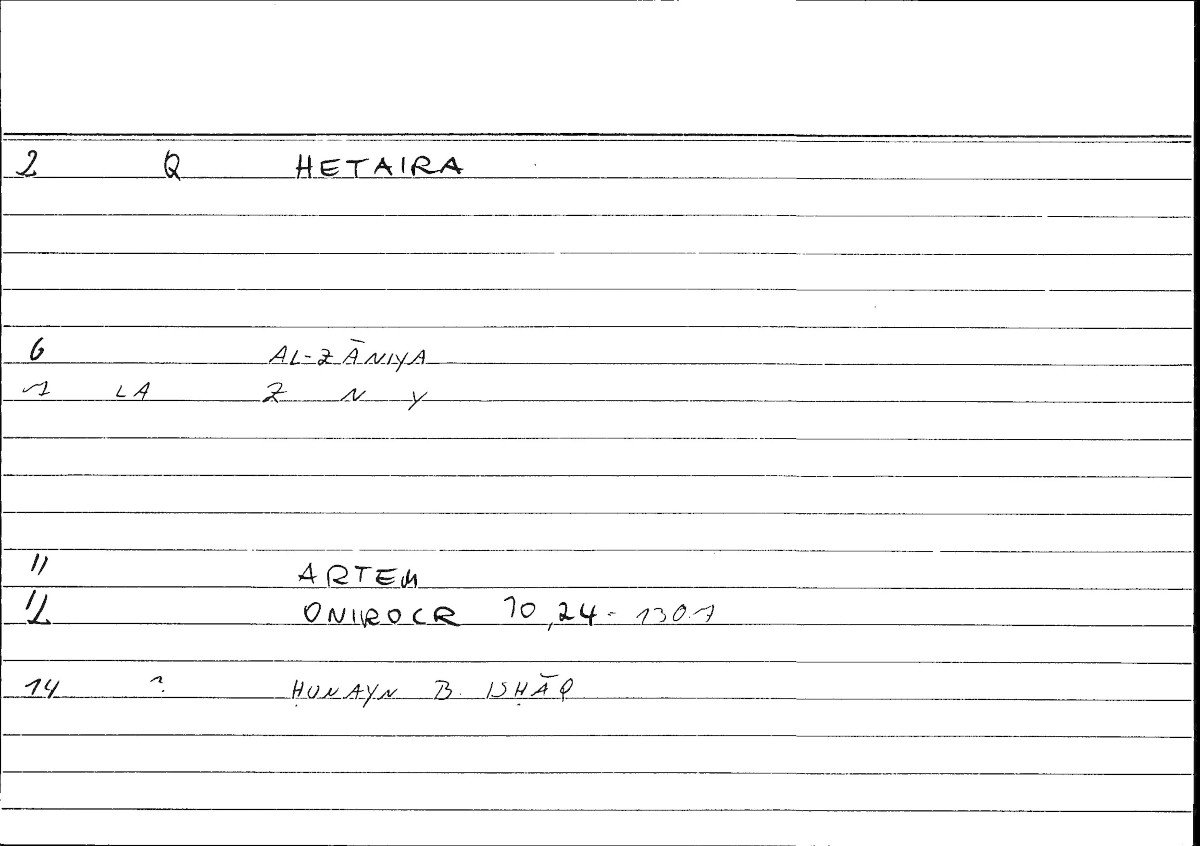 2 Q HETAIRA
6 AL-ZĀNIYA
7 LA Z N Y
11 ARTEM
12 ONIROCR 10,24- 130.7
14 ? ḤUNAYN B. ISḤĀQ